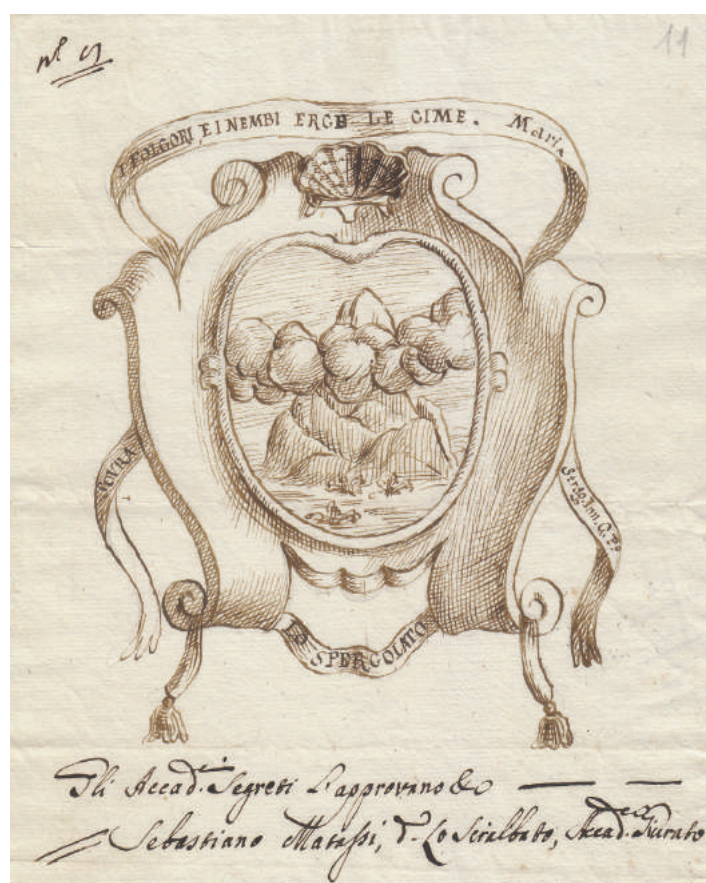 nº 9
11
SOVRA
I FOLGORI, E I NEMBI ERGE LE CIME. Marin
Serdo. Inn. C. Pº
LO SPERGOLATO
Gli Accad.ci Segreti l'approvano &c
Sebastiano Matassi, d.º Lo Scialbato, Accad.co Giurato